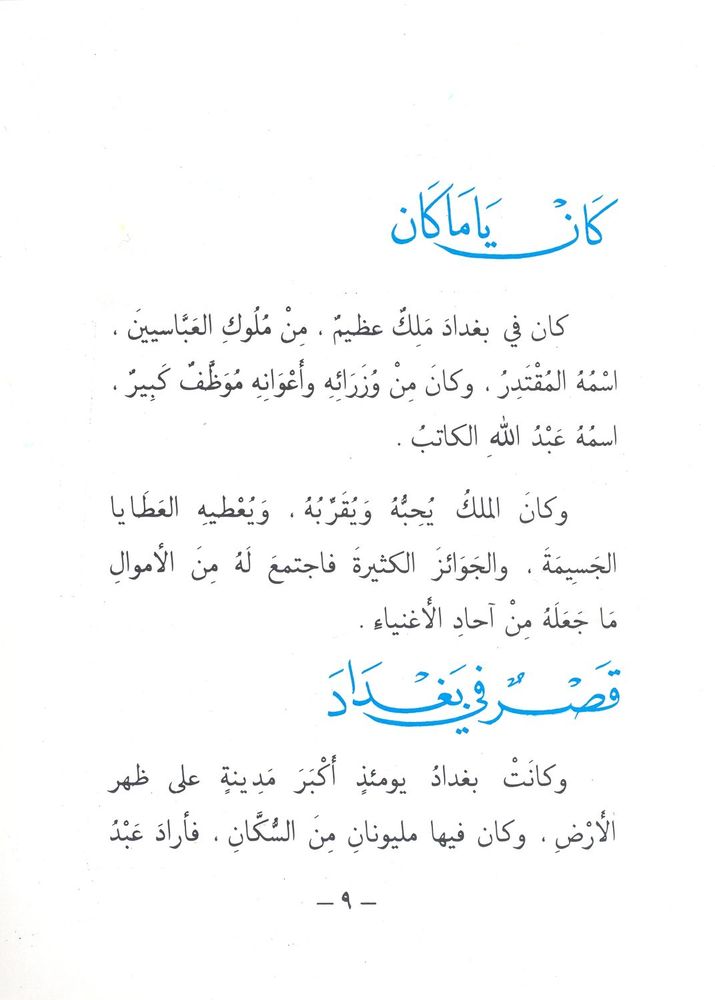 كَانْ يَامَاكَان
كان في بغدادَ مَلِكٌ عظيمٌ ، مِنْ مُلُوكِ العَبَّاسيينَ ،
اسْمُهُ المُقْتَدِرُ ، وكانَ مِنْ وُزَرَائِهِ وأَعْوَانِهِ مُوَظَّفٌ كَبِيرٌ ،
اسمُهُ عَبْدُ اللهِ الكاتبُ .
وكانَ الملكُ يُحِبُّهُ وَيُقَرِّبُهُ ، وَيُعْطيهِ العَطَايا
الجَسِيمَةَ ، والجَوَائزَ الكثيرةَ فاجتمعَ لَهُ مِنَ الأموالِ
مَا جَعَلَهُ مِنْ آحادِ الأغنياءِ .
قَصْرٌ في بَغْدَادَ
وكانَتْ بغدادُ يومئذٍ أَكْبَرَ مَدِينةٍ على ظهر
الأَرْضِ ، وكان فيها مليونانِ مِنَ السُّكَّانِ ، فأرادَ عَبْدُ
— ٩ —